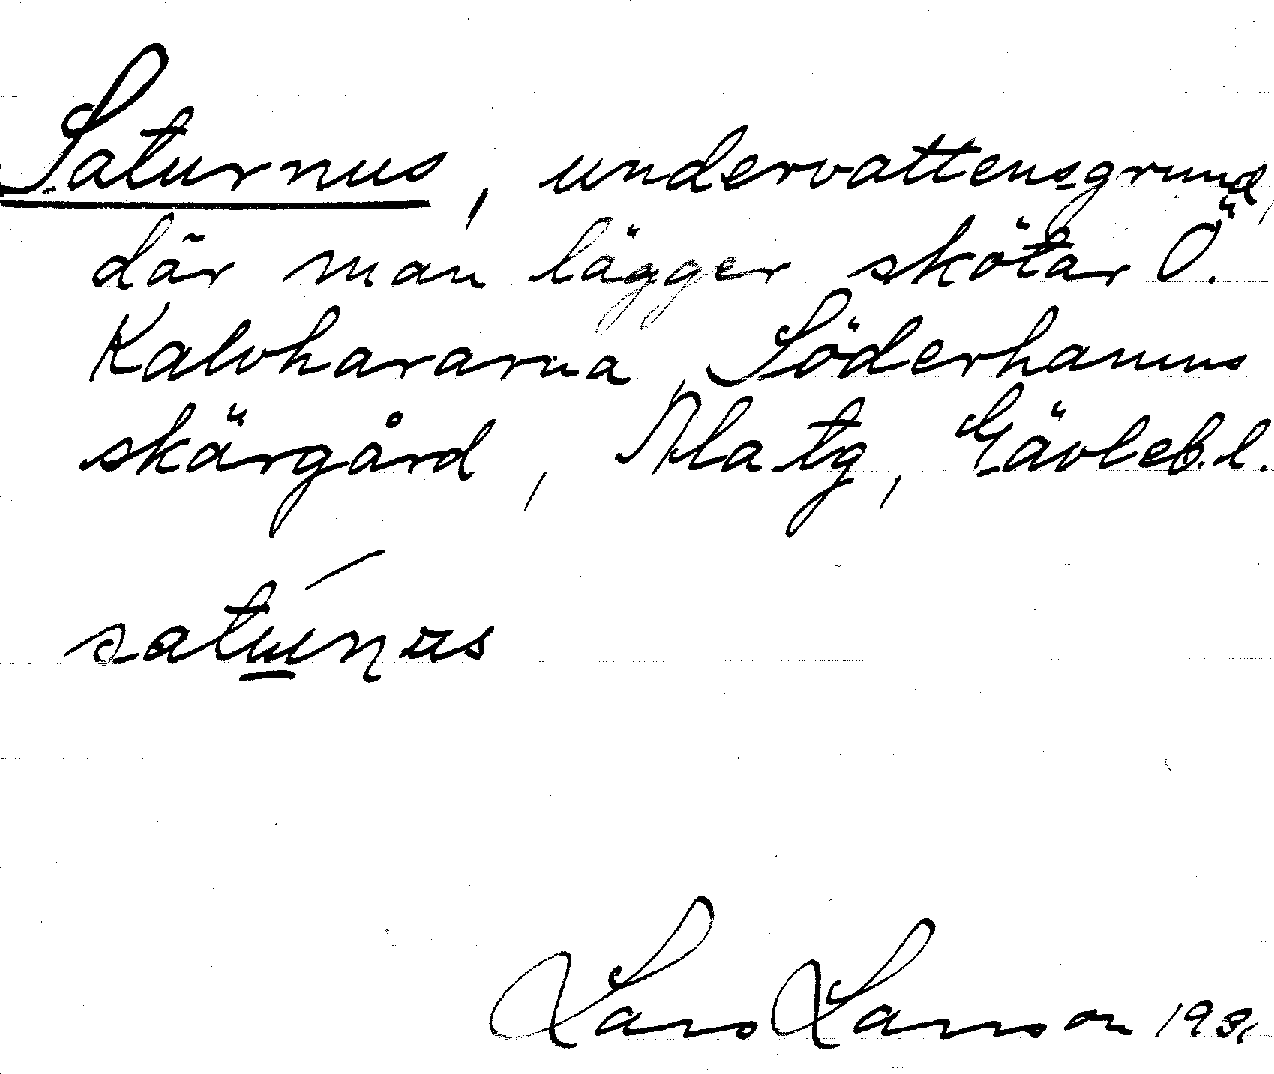 Saturnus, undervattensgrund,
där man lägger skötar Ö.
Kalvhararna, Söderhamns
skärgård, Ala tg, Gävleb.l.
Lars Larsson 1931